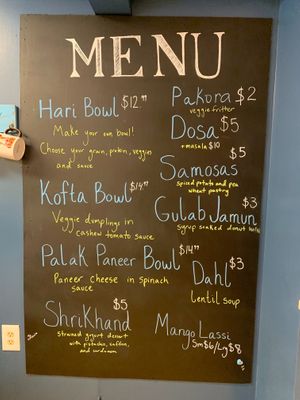 MENU
Hari Bowl $12.99
Make your own bowl!
Choose your grain, protein, veggies
and sauce
Kofta Bowl $14.99
Veggie dumplings in
cashew tomato sauce
Palak Paneer Bowl $14.99
Paneer cheese in spinach
sauce
Shrikhand $5
strained yogurt dessert
with pistachio, saffron,
and cardamom
Pakora $2
veggie fritter
Dosa $5
+masala $10
Samosas $5
spiced potato and pea
wheat pastry
Gulab Jamun $3
syrup soaked donut holes
Dahl $3
lentil soup
Mango Lassi
Sm $6/Lg $8